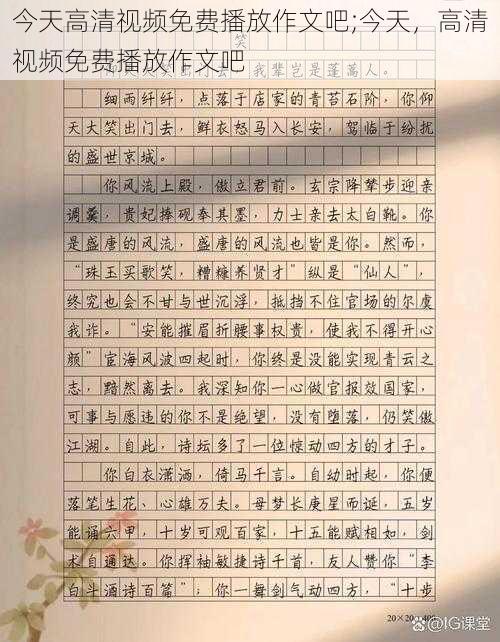 今天高清视频免费播放作文吧;今天，高清
视频免费播放作文吧
笑
我辈岂是蓬蒿人。
细雨纤纤，点落于店家的青苔石阶，你仰
天大笑出门去，鲜衣怒马入长安，驾临于纷扰
的盛世京城。
你风流上殿，傲立君前。玄宗降辇步迎亲
调羹，贵妃捧砚奉其墨，力士亲去太白靴。你
是盛唐的风流，盛唐的风流也皆是你。然而，
“珠玉买歌笑，糟糠养贤才”纵是“仙人”，
终究也会不甘与世沉浮，抵挡不住官场的尔虞
我诈。“安能摧眉折腰事权贵，使我不得开心
颜”宦海风波四起时，你终是没能实现青云之
志，黯然离去。我深知你一心做官报效国家，
可事与愿违的你不是绝望，没有堕落，仍笑傲
江湖。自此，诗坛多了一位惊动四方的才子。
你白衣潇洒，倚马千言。自幼时起，你便
落笔生花、心雄万夫。母梦长庚星而诞，五岁
能诵六甲，十岁可观百家，十五能赋相如，剑
术自通达。你挥袖敏捷诗千首，友人赞你“李
白斗酒诗百篇”；你一舞剑气动四方，“十步
20×20=400
@IG课堂